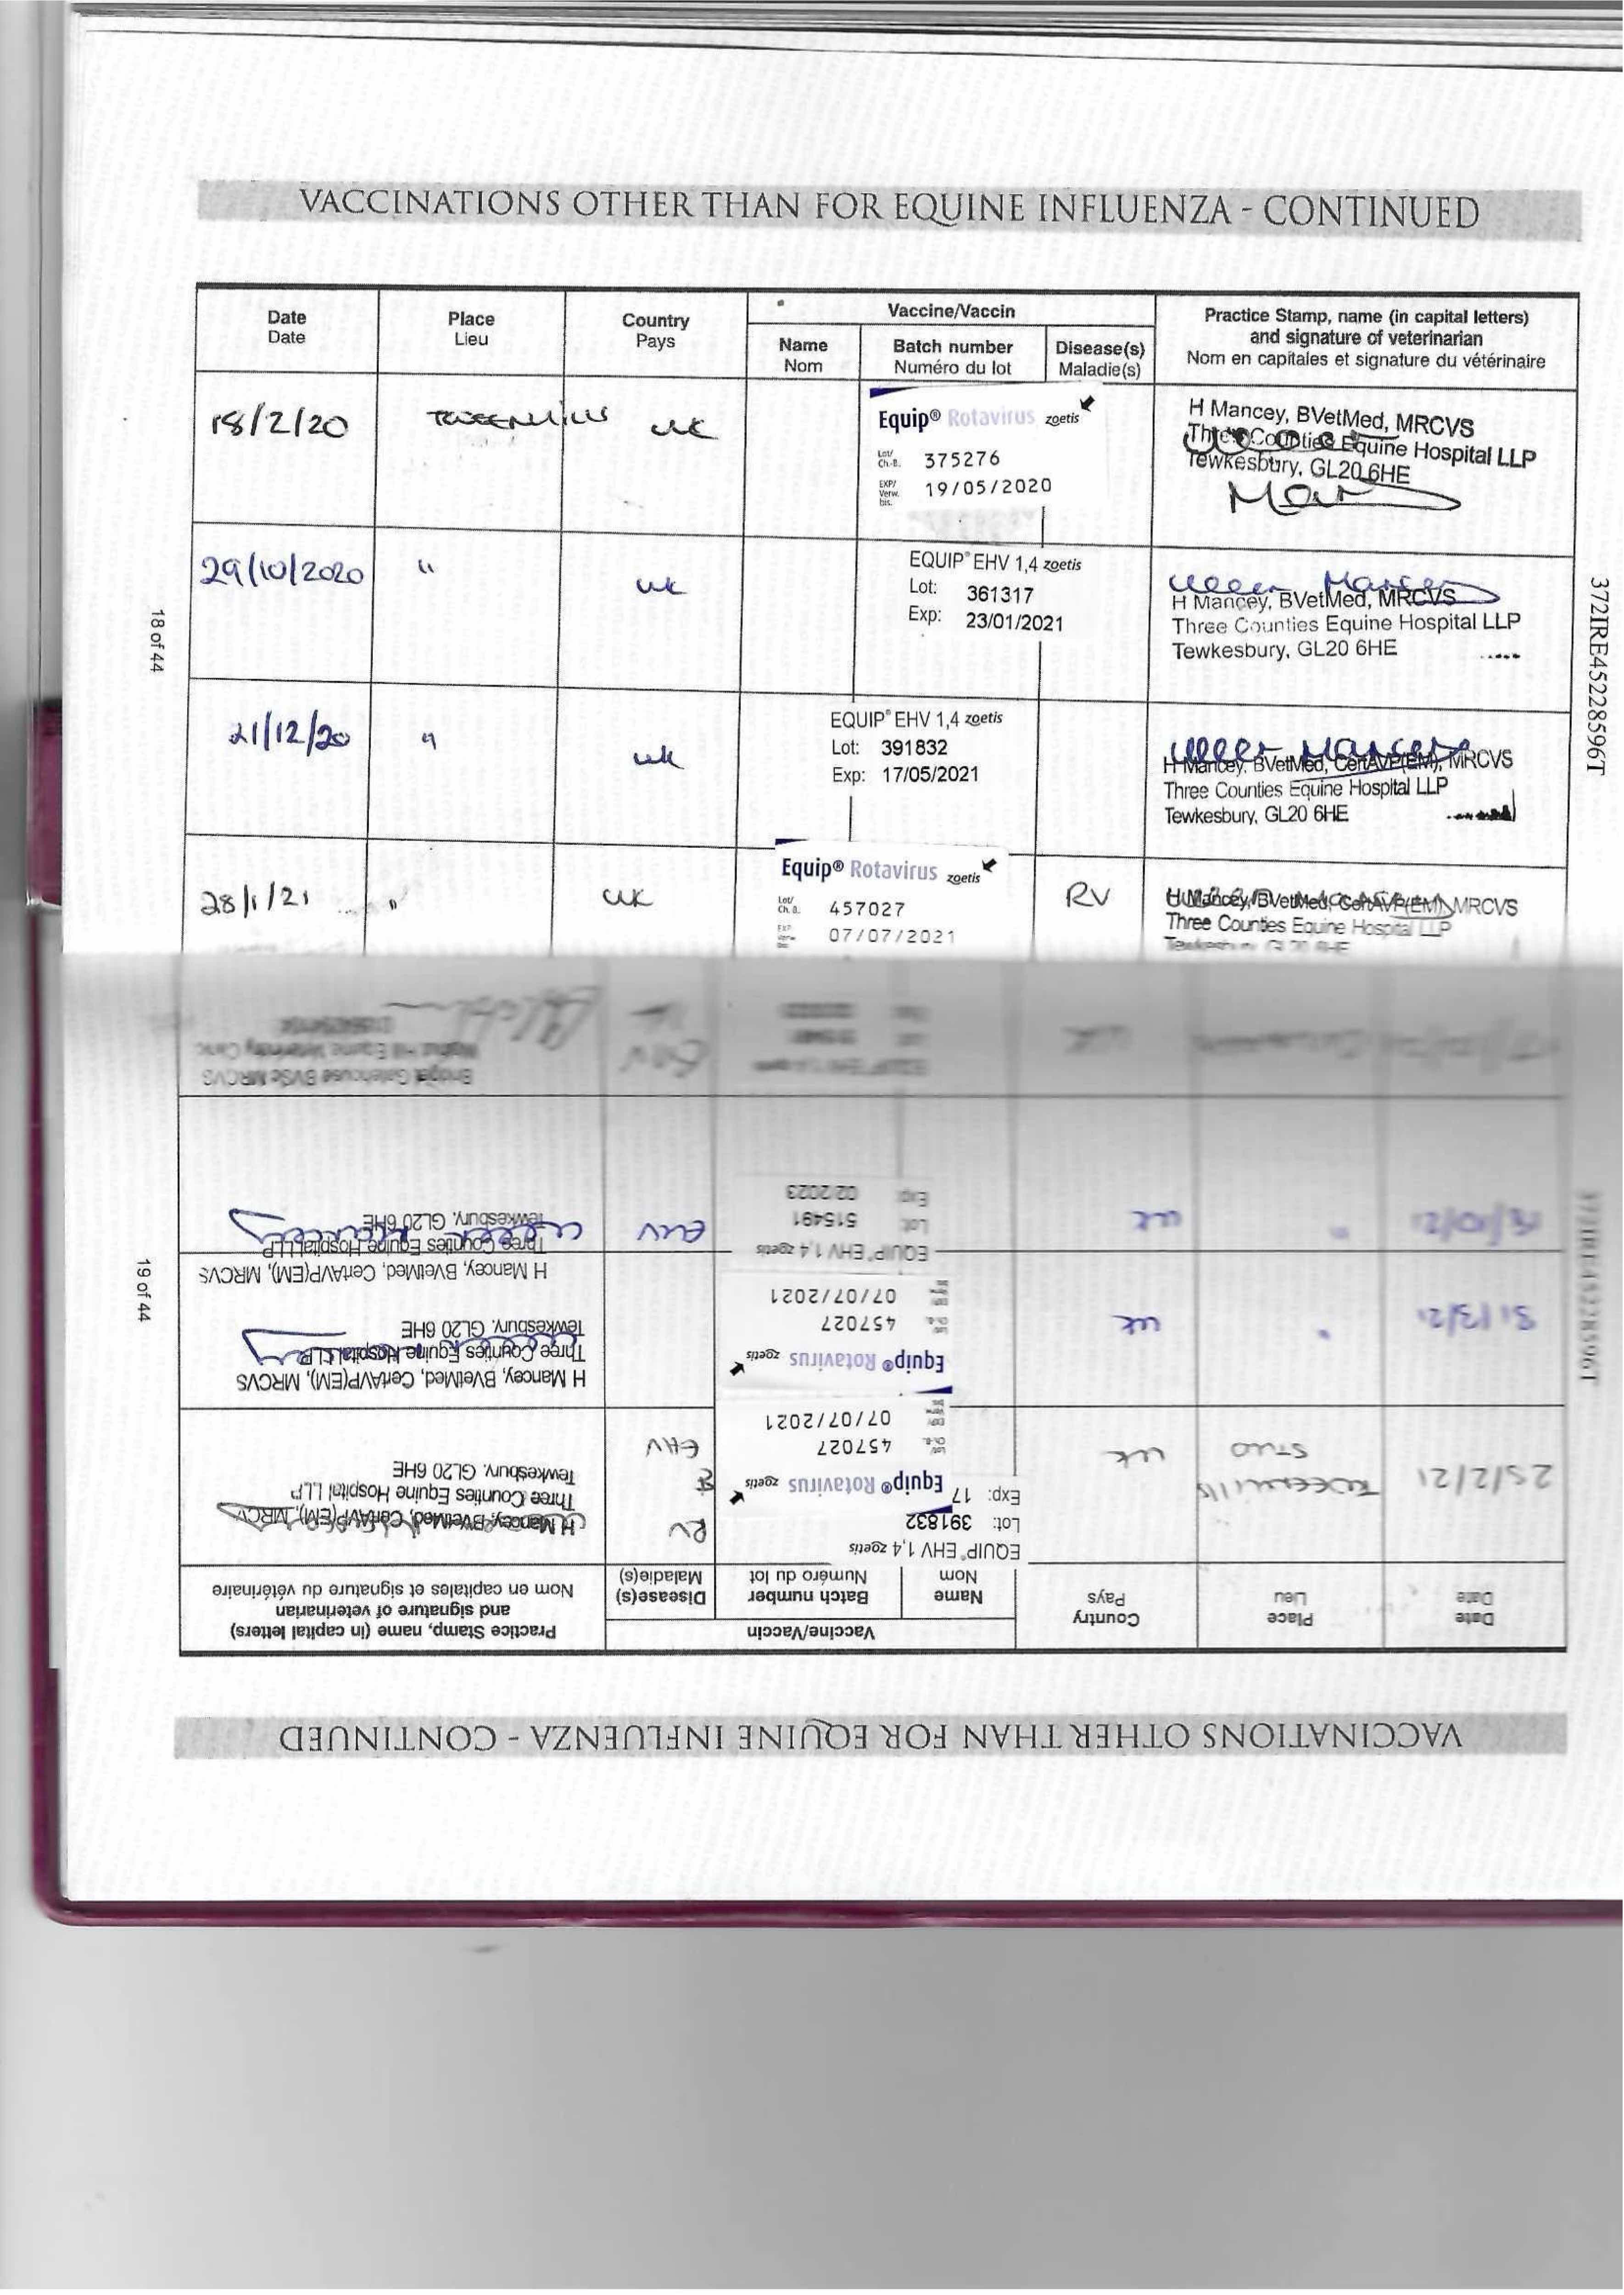 VACCINATIONS OTHER THAN FOR EQUINE INFLUENZA - CONTINUED
Date
Date
Place
Lieu
Country
Pays
Vaccine/Vaccin
Name
Nom
Batch number
Numéro du lot
Disease(s)
Maladie(s)
Practice Stamp, name (in capital letters)
and signature of veterinarian
Nom en capitales et signature du vétérinaire
18/2/20
UK
Equip® Rotavirus zoetis
Lot/ Ch.-B. 375276
EXP/ Verw. bis. 19/05/2020
H Mancey, BVetMed, MRCVS
Three Counties Equine Hospital LLP
Tewkesbury, GL20 6HE
29/10/2020 " UK
EQUIP® EHV 1,4 zoetis
Lot: 361317
Exp: 23/01/2021
H Mancey, BVetMed, MRCVS
Three Counties Equine Hospital LLP
Tewkesbury, GL20 6HE
21/12/20 " UK
EQUIP® EHV 1,4 zoetis
Lot: 391832
Exp: 17/05/2021
H Mancey, BVetMed, CertAVP(EM), MRCVS
Three Counties Equine Hospital LLP
Tewkesbury, GL20 6HE
28/1/21 " UK
Equip® Rotavirus zoetis
Lot/ Ch.-B. 457027
07/07/2021
RV
H Mancey, BVetMed, CertAVP(EM), MRCVS
Three Counties Equine Hospital LLP
Tewkesbury, GL20 6HE
18 of 44
372IRE45228596T
VACCINATIONS OTHER THAN FOR EQUINE INFLUENZA - CONTINUED
Date
Date
Place
Lieu
Country
Pays
Vaccine/Vaccin
Name
Nom
Batch number
Numéro du lot
Disease(s)
Maladie(s)
Practice Stamp, name (in capital letters)
and signature of veterinarian
Nom en capitales et signature du vétérinaire
25/2/21
STUD
UK
EQUIP® EHV 1,4 zoetis
Lot: 391832
Exp: 17
Equip® Rotavirus zoetis
Lot/ Ch.-B. 457027
EXP/ Verw. bis. 07/07/2021
RV
&
EHV
H Mancey, BVetMed, CertAVP(EM), MRCVS
Three Counties Equine Hospital LLP
Tewkesbury, GL20 6HE
31/3/21 " UK
Equip® Rotavirus zoetis
Lot/ Ch.-B. 457027
07/07/2021
H Mancey, BVetMed, CertAVP(EM), MRCVS
Three Counties Equine Hospital LLP
Tewkesbury, GL20 6HE
" UK
EQUIP® EHV 1,4 zoetis
Lot: 515491
Exp: 02 2023
EHV
H Mancey, BVetMed, CertAVP(EM), MRCVS
Three Counties Equine Hospital LLP
Tewkesbury, GL20 6HE
UK
EQUIP® EHV 1,4
EHV
Bridget Gatehouse BVSc MRCVS
Equine Veterinary Clinic
19 of 44
372IRE45228596T